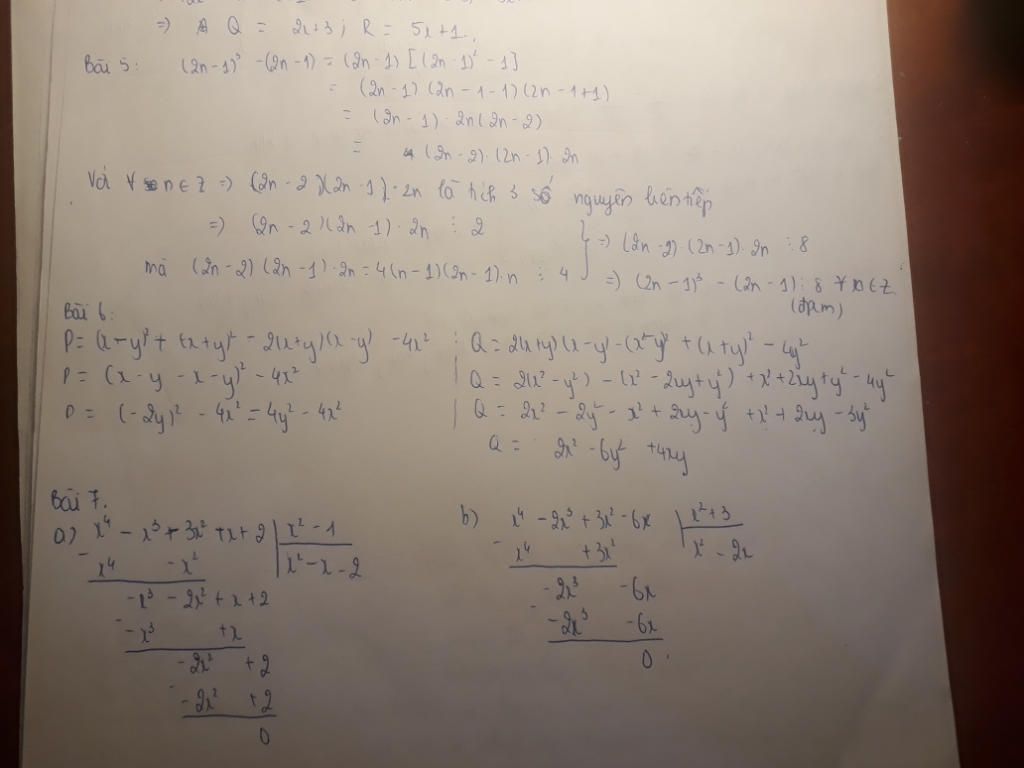 => Q = 2x+3; R = 5x+1.
Bài 5: (2n-1)³ -(2n-1) = (2n-1) [(2n-1)² - 1]
= (2n-1) (2n-1-1) (2n-1+1)
= (2n-1) · 2n(2n-2)
= (2n-2) · (2n-1) · 2n
Với ∀ n ∈ Z => (2n-2)(2n-1) · 2n là tích 3 số nguyên liên tiếp
=> (2n-2)(2n-1) · 2n ⋮ 2
mà (2n-2) (2n-1) · 2n = 4(n-1)(2n-1) · n ⋮ 4
} => (2n-2) · (2n-1) · 2n ⋮ 8
=> (2n-1)³ - (2n-1) ⋮ 8 ∀ n ∈ Z.
(đpcm)
Bài 6:
P = (x-y)² + (x+y)² - 2(x+y)(x-y) - 4x²
P = (x-y-x-y)² - 4x²
P = (-2y)² - 4x² = 4y² - 4x²
Q = 2(x+y)(x-y) - (x-y)² + (x+y)² - 4y²
Q = 2(x²-y²) - (x²-2xy+y²) + x²+2xy+y² - 4y²
Q = 2x² - 2y² - x² + 2xy - y² + x² + 2xy - 3y²
Q = 2x² - 6y² + 4xy
Bài 7.
a) x⁴ - x³ - 3x² + x + 2 | x² - 1
- x⁴ - x² | x² - x - 2
-x³ - 2x² + x + 2
- -x³ + x
-2x² + 2
- -2x² + 2
0
b) x⁴ - 2x³ + 3x² - 6x | x² + 3
- x⁴ + 3x² | x² - 2x
-2x³ - 6x
- -2x³ - 6x
0